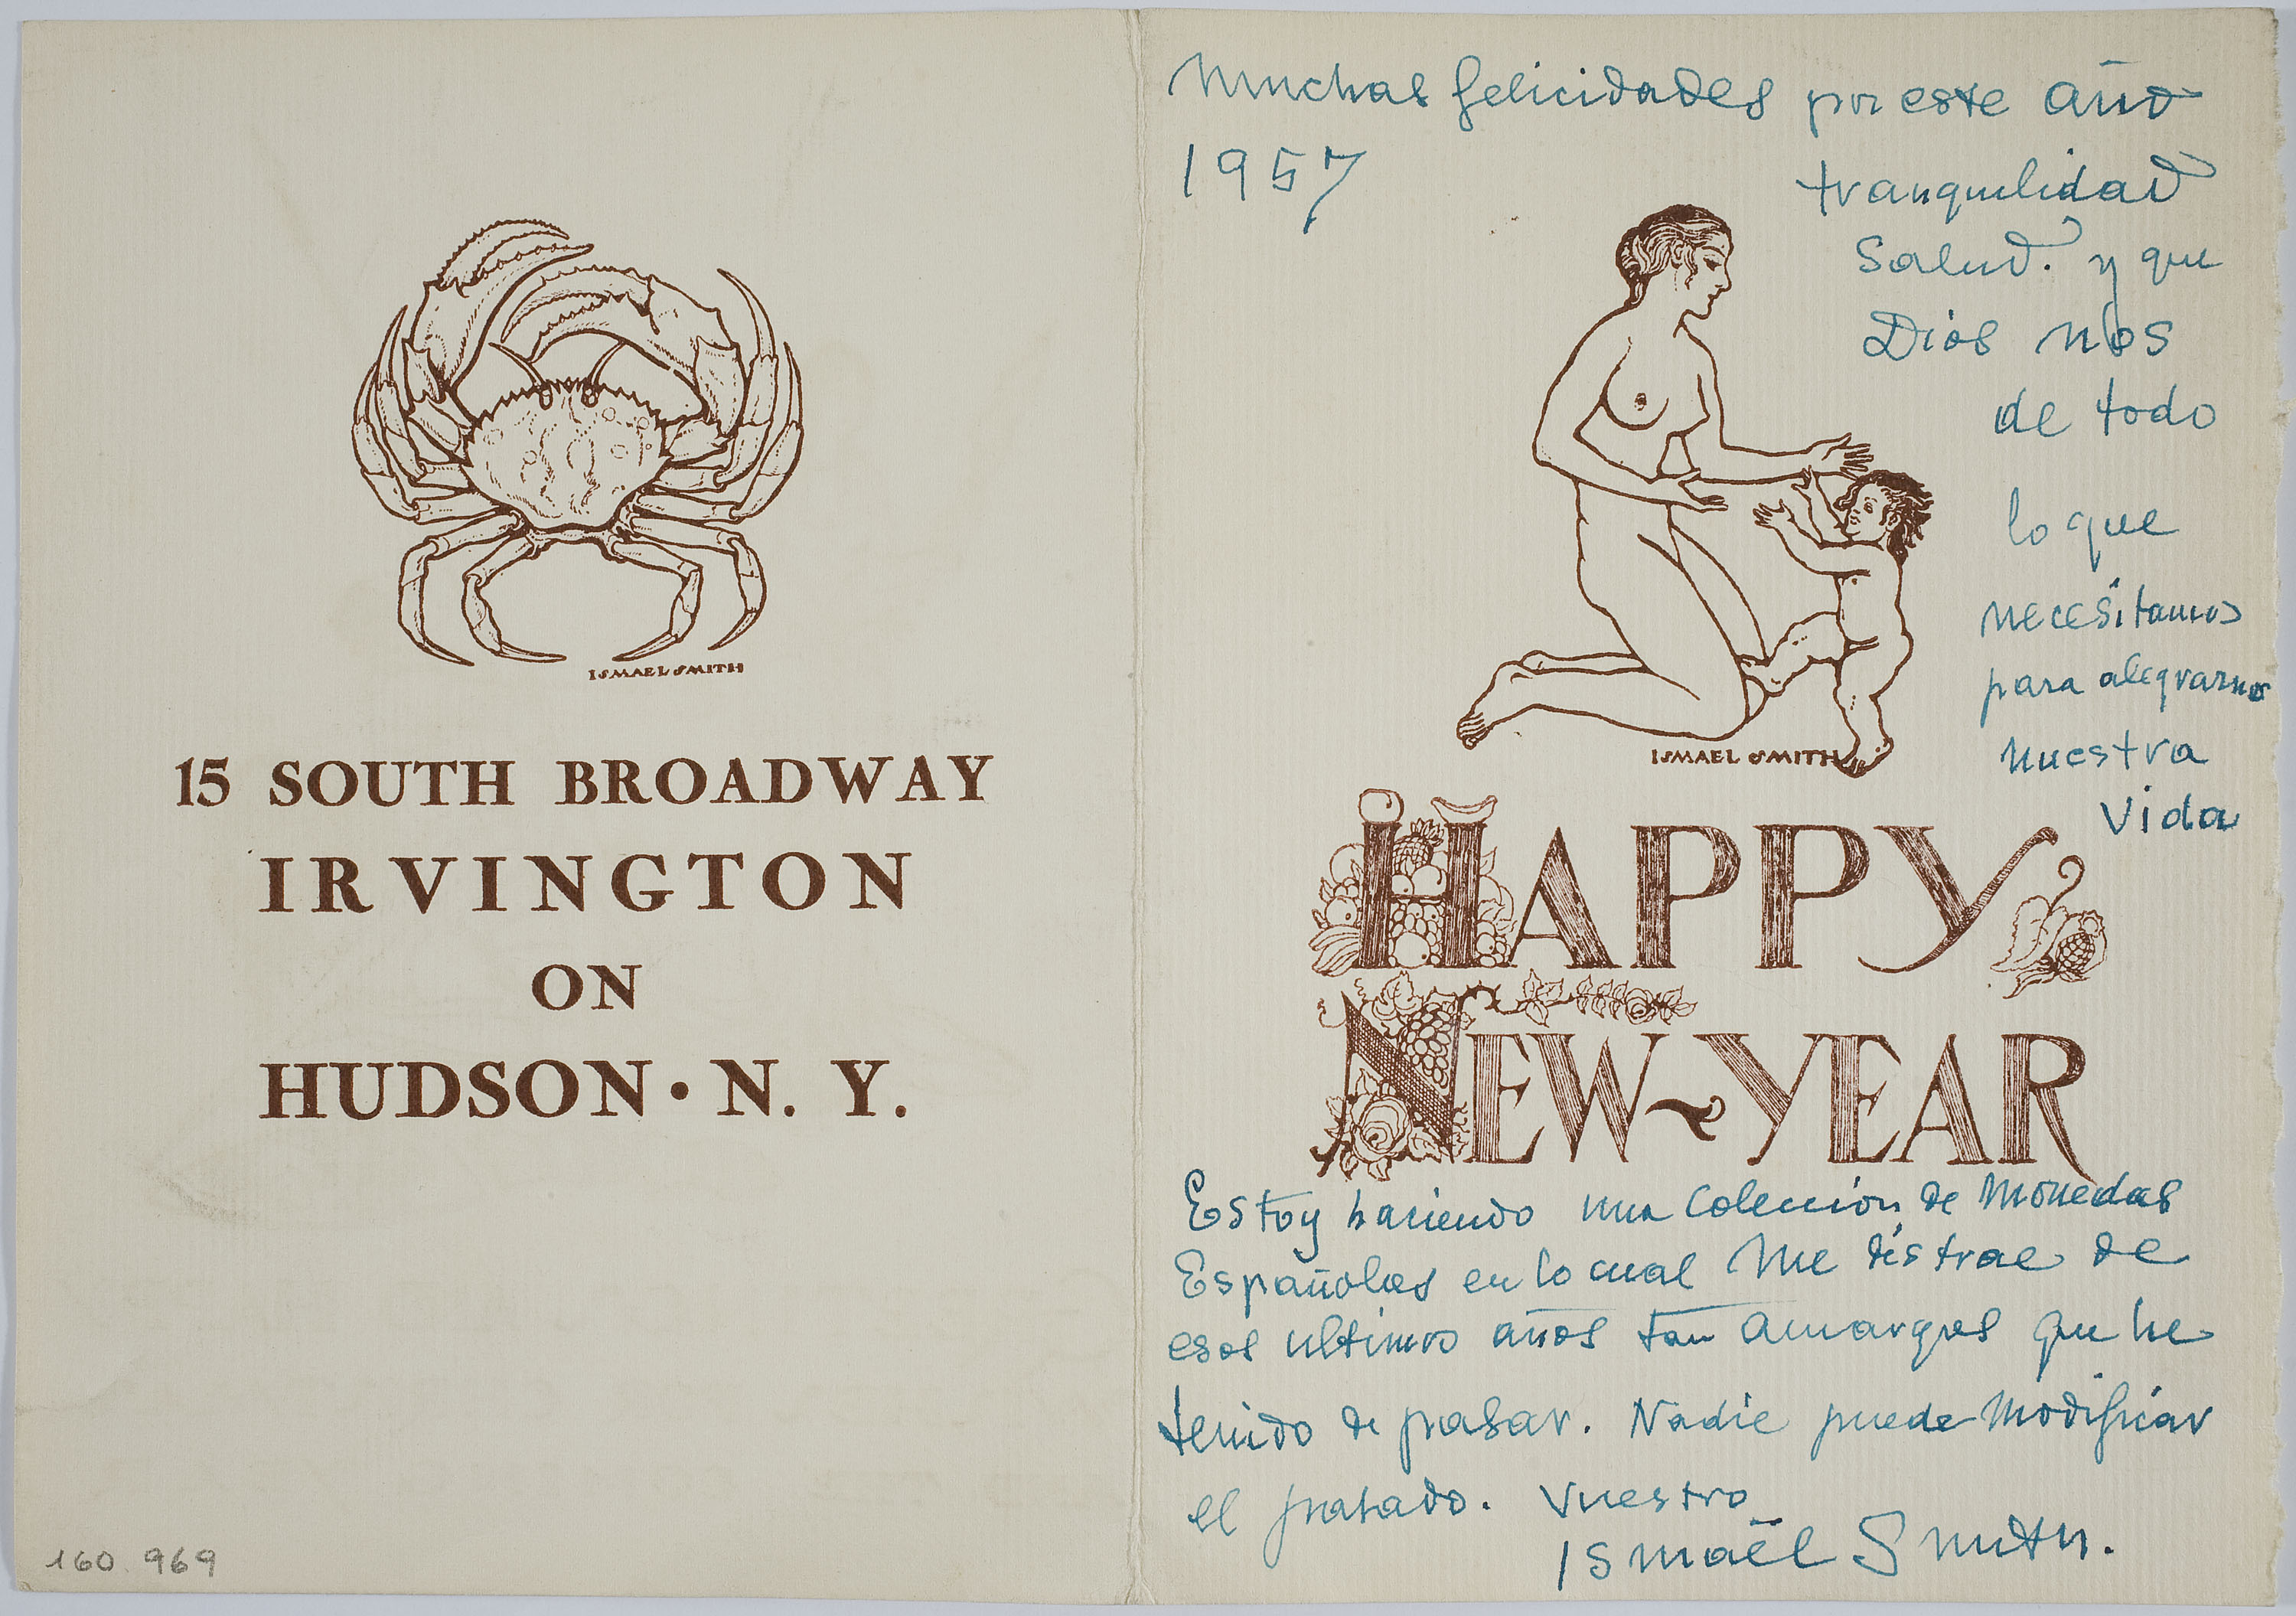 ISMAEL SMITH
15 SOUTH BROADWAY
IRVINGTON
ON
HUDSON · N. Y.
160.969
Muchas felicidades por este año
1957
tranquilidad
Salud. y que
Dios nos
de todo
lo que
necesitamos
para alegrarnos
nuestra
vida
ISMAEL SMITH
HAPPY
NEW~YEAR
Estoy haciendo una colección de Monedas
Españolas en lo cual Me distrae de
esos ultimos años tan amargos que he
tenido de pasar. Nadie puede Modificar
el pasado. Vuestro
Ismaël Smith.